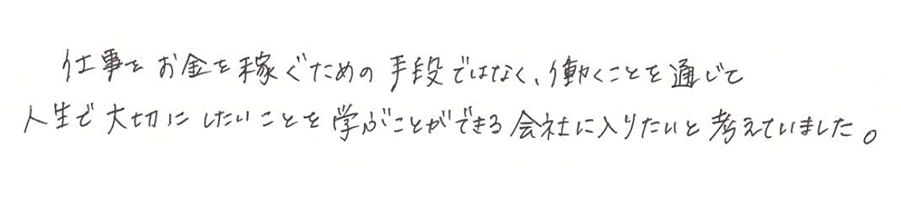 仕事をお金を稼ぐための手段ではなく、働くことを通じて
人生で大切にしたいことを学ぶことができる会社に入りたいと考えていました。